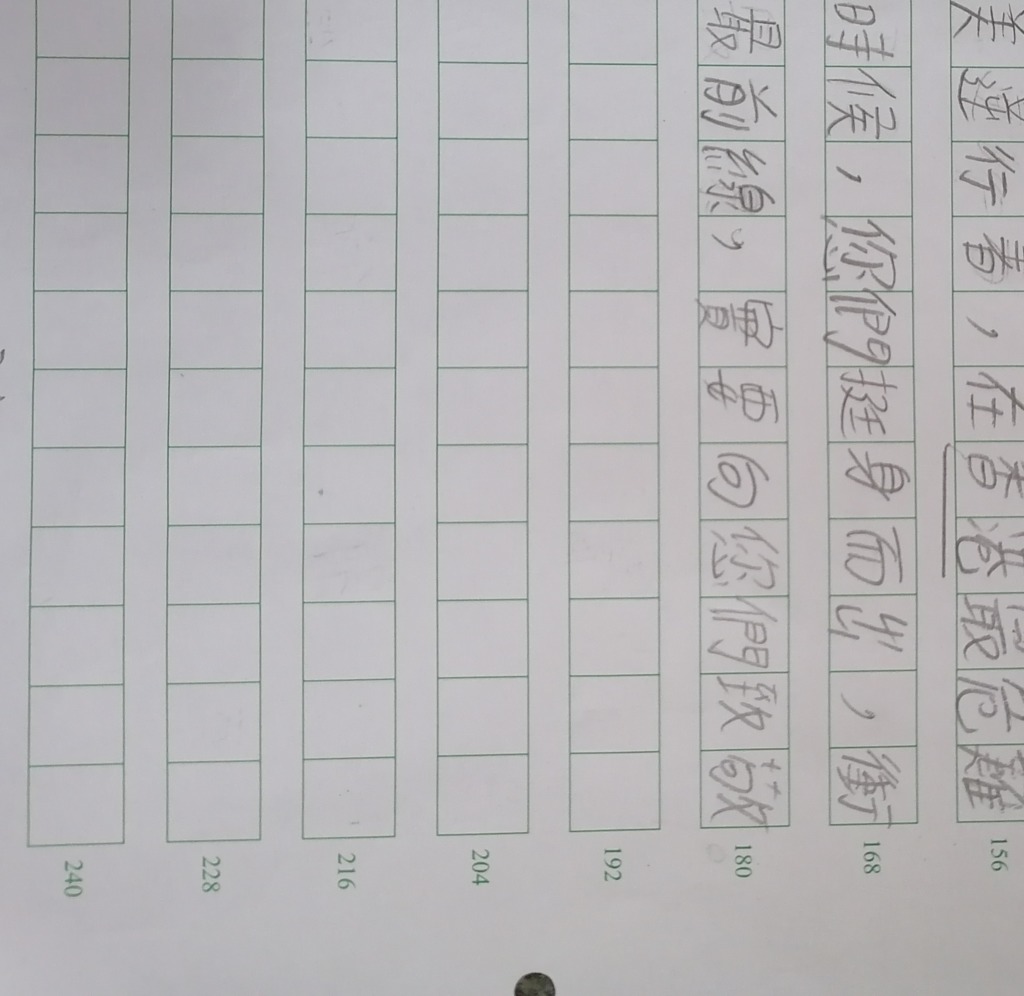 美逆行者，在香港最危難
時候，您們挺身而出，衝
最前線，實要向您們致敬
156
168
180
192
204
216
228
240